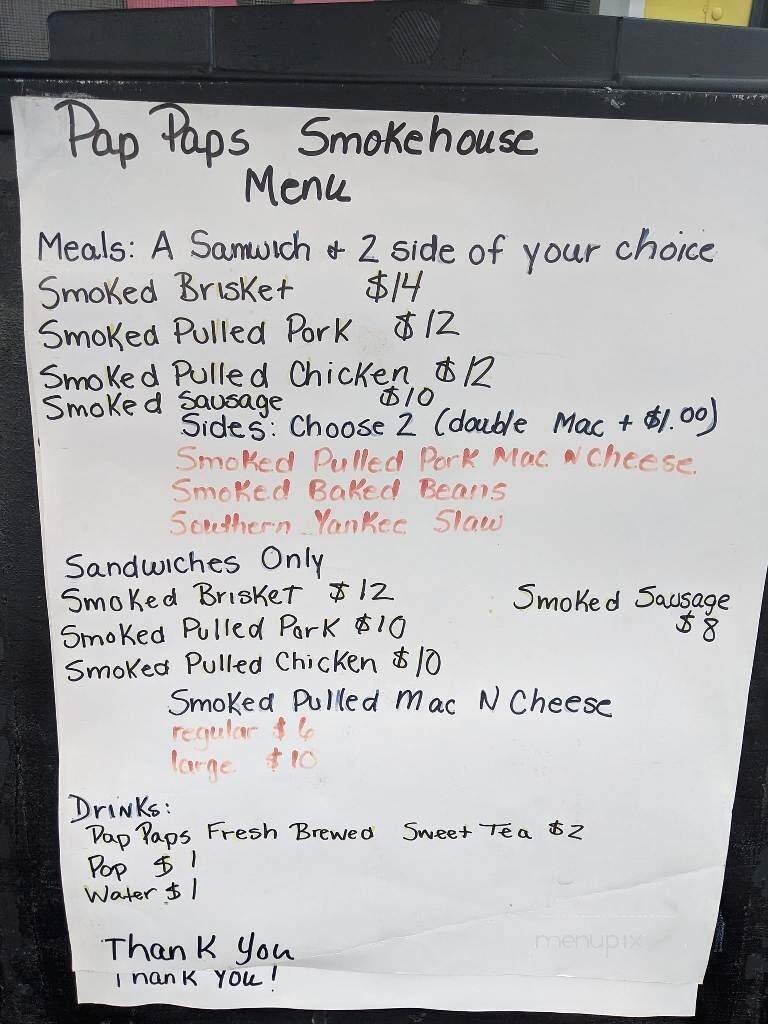 Pap Paps Smokehouse
Menu
Meals: A Samwich & 2 side of your choice
Smoked Brisket $14
Smoked Pulled Pork $12
Smoked Pulled Chicken $12
Smoked Sausage $10
Sides: Choose 2 (double Mac + $1.00)
Smoked Pulled Pork Mac N Cheese
Smoked Baked Beans
Southern Yankee Slaw
Sandwiches Only
Smoked Brisket $12
Smoked Sausage
$8
Smoked Pulled Pork $10
Smoked Pulled Chicken $10
Smoked Pulled Mac N Cheese
regular $6
large $10
Drinks:
Pap Paps Fresh Brewed Sweet Tea $2
Pop $1
Water $1
Thank You
Thank You!
menupix